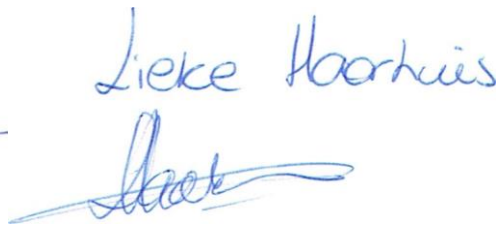 Lieke Haarhuis